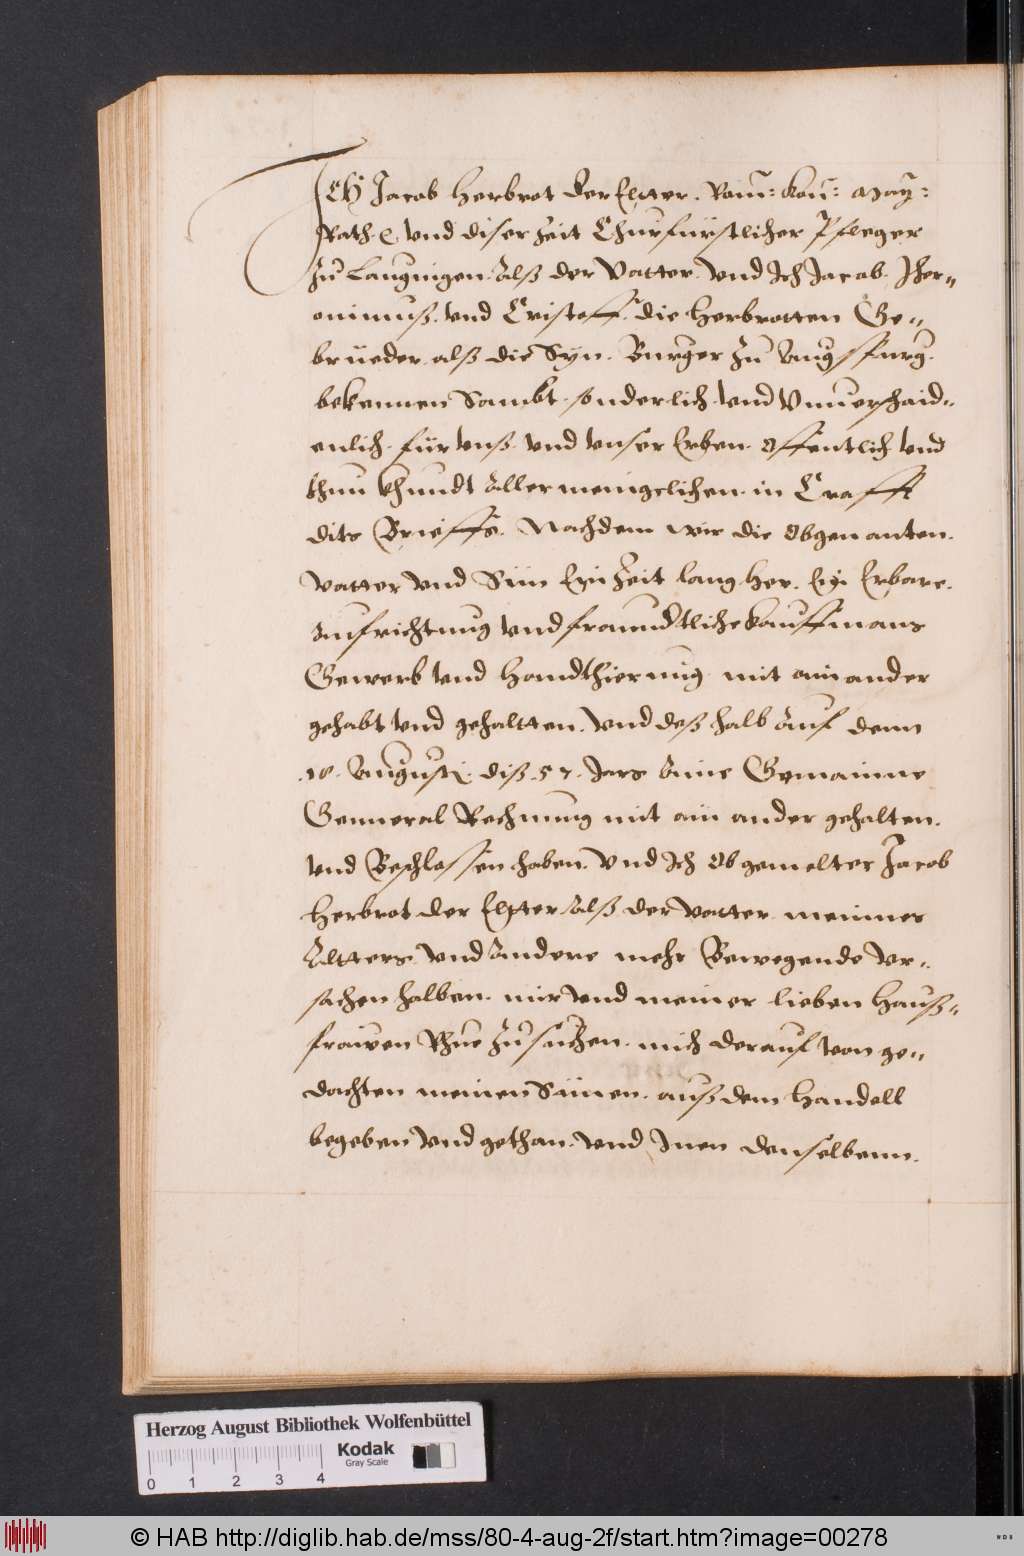 ICH Jacob Herbrot der Elltter. Röm: Kön: May:
Rath ꝛc. vnd diser Zeit Churfürstlicher Pfleger
zu Laugingen. Alß der Vatter. vnd Ich Jacob. Jher-
onimuß. vnd Cristoff. die Herbrotten Ge-
brüeder. alß die Syn. Burger zu Augsspurg.
bekennen Sambt. sonderlich. vnd Vnuerschaid-
enlich. für vnß. vnd vnser Erben. Offentlich vnd
thuu khundt Allermenigclichen. in Crafft
dits Brieffs. Nachdem wir die Obgenanten.
Vatter vnd Sün Ein Zeit lang her. Ein Erbare.
Aufrichtung vnd freundtliche Kauffmans
Gewerb vnd Handthierung mit ainander
gehabt vnd gehaltten. vnd deßhalb Auf denn
.10. Augusti. diß .57. Jars Aine Gemainne
Genneral Rechnung mit ain ander gehalten.
vnd Beschlossen haben. Vnd Ich Obgemelter Jacob
Herbrot der Elltter Alß der Vatter meinnes
Altters. vnd Andere mehr Bewegende Vr-
sachen halben. mir vnd meiner lieben Hauß-
frawen Rhue zu suchen. mich derauf von ge-
dachten meinen Sünen. auß dem Handell
begeben vnd gethan. vnd Inen denselbenn.
Herzog August Bibliothek Wolfenbüttel
Kodak
Gray Scale
0 1 2 3 4
© HAB http://diglib.hab.de/mss/80-4-aug-2f/start.htm?image=00278